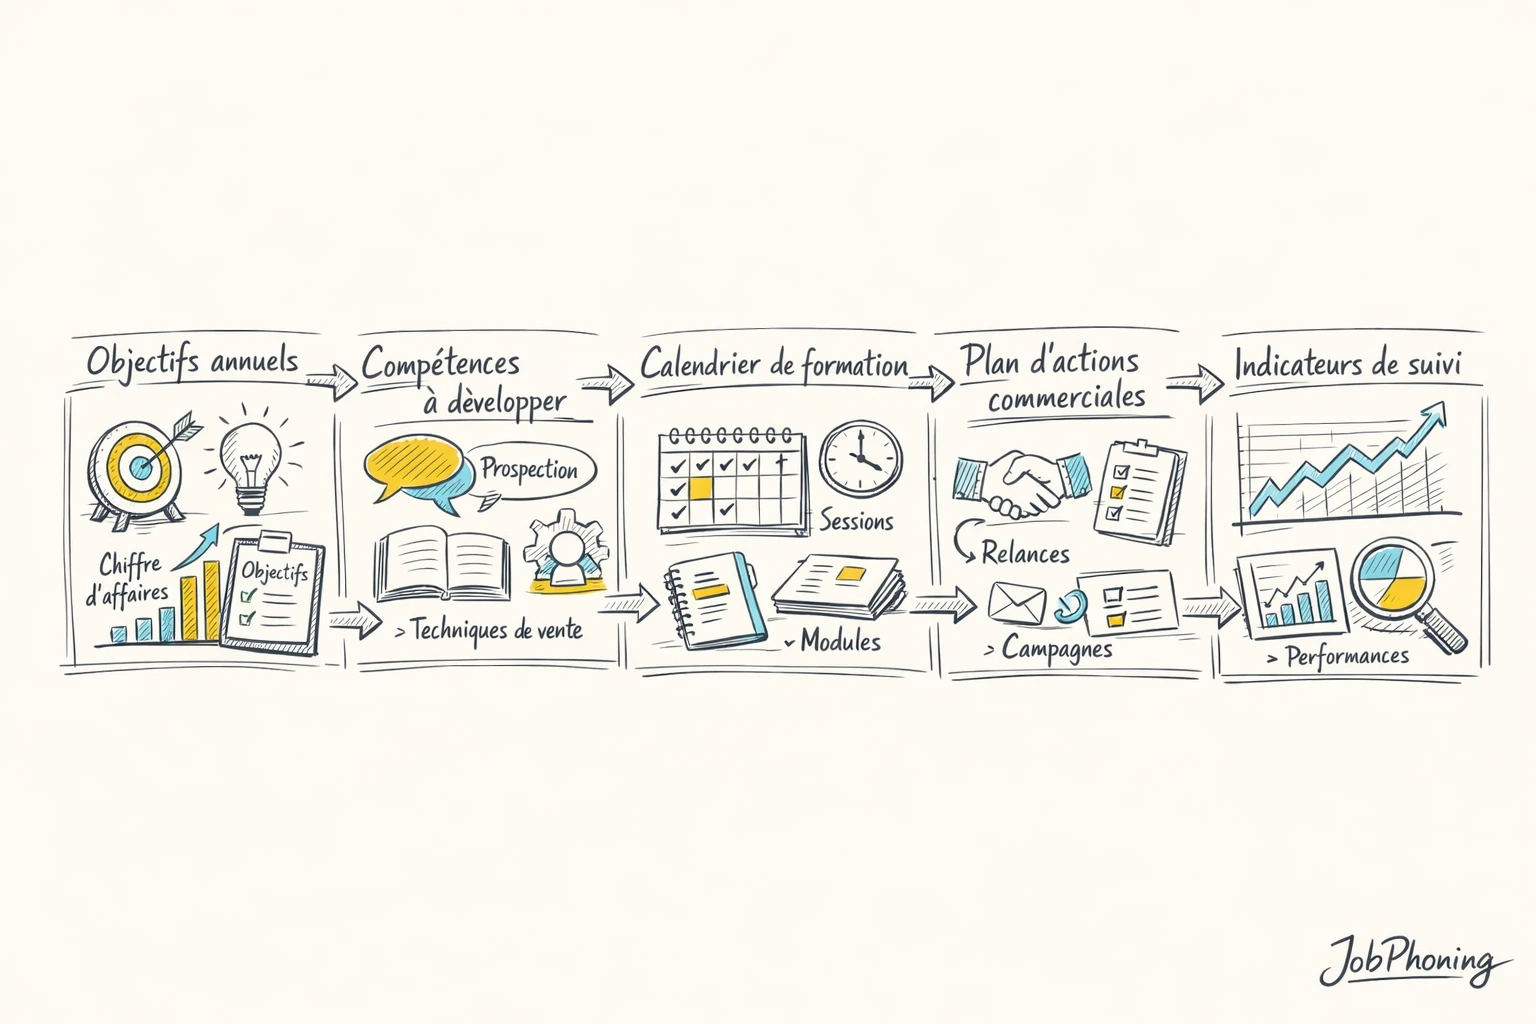 Objectifs annuels
Chiffre
d'affaires
Objectifs
Compétences
à dèvelopper
Prospection
> Techniques de vente
Calendrier de formation
Sessions
Modules
Plan d'actions
commerciales
Relances
> Campagnes
Indicateurs de suivi
> Performances
JobPhoning